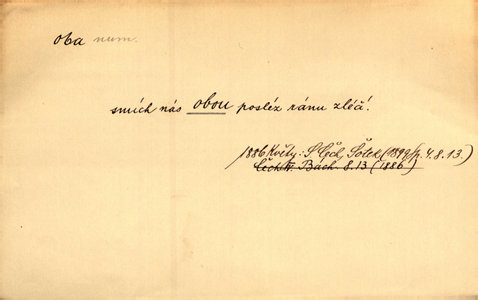 oba num.
smích nás obou posléz ránu zléčí.
1886 Květy: S. Čech, Šotek (1899) p. 4. 8. 13.)
Čech. Bách. 8. 13 (1886)